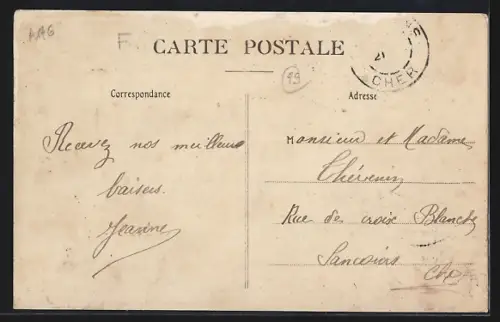 AA6
F
CARTE POSTALE
CHER
Correspondance
Recevez nos meilleurs
baisers.
Jeanne
Adresse
Monsieur et Madame
Thévenin
Rue de croix Blanche
Sancoins
Cher